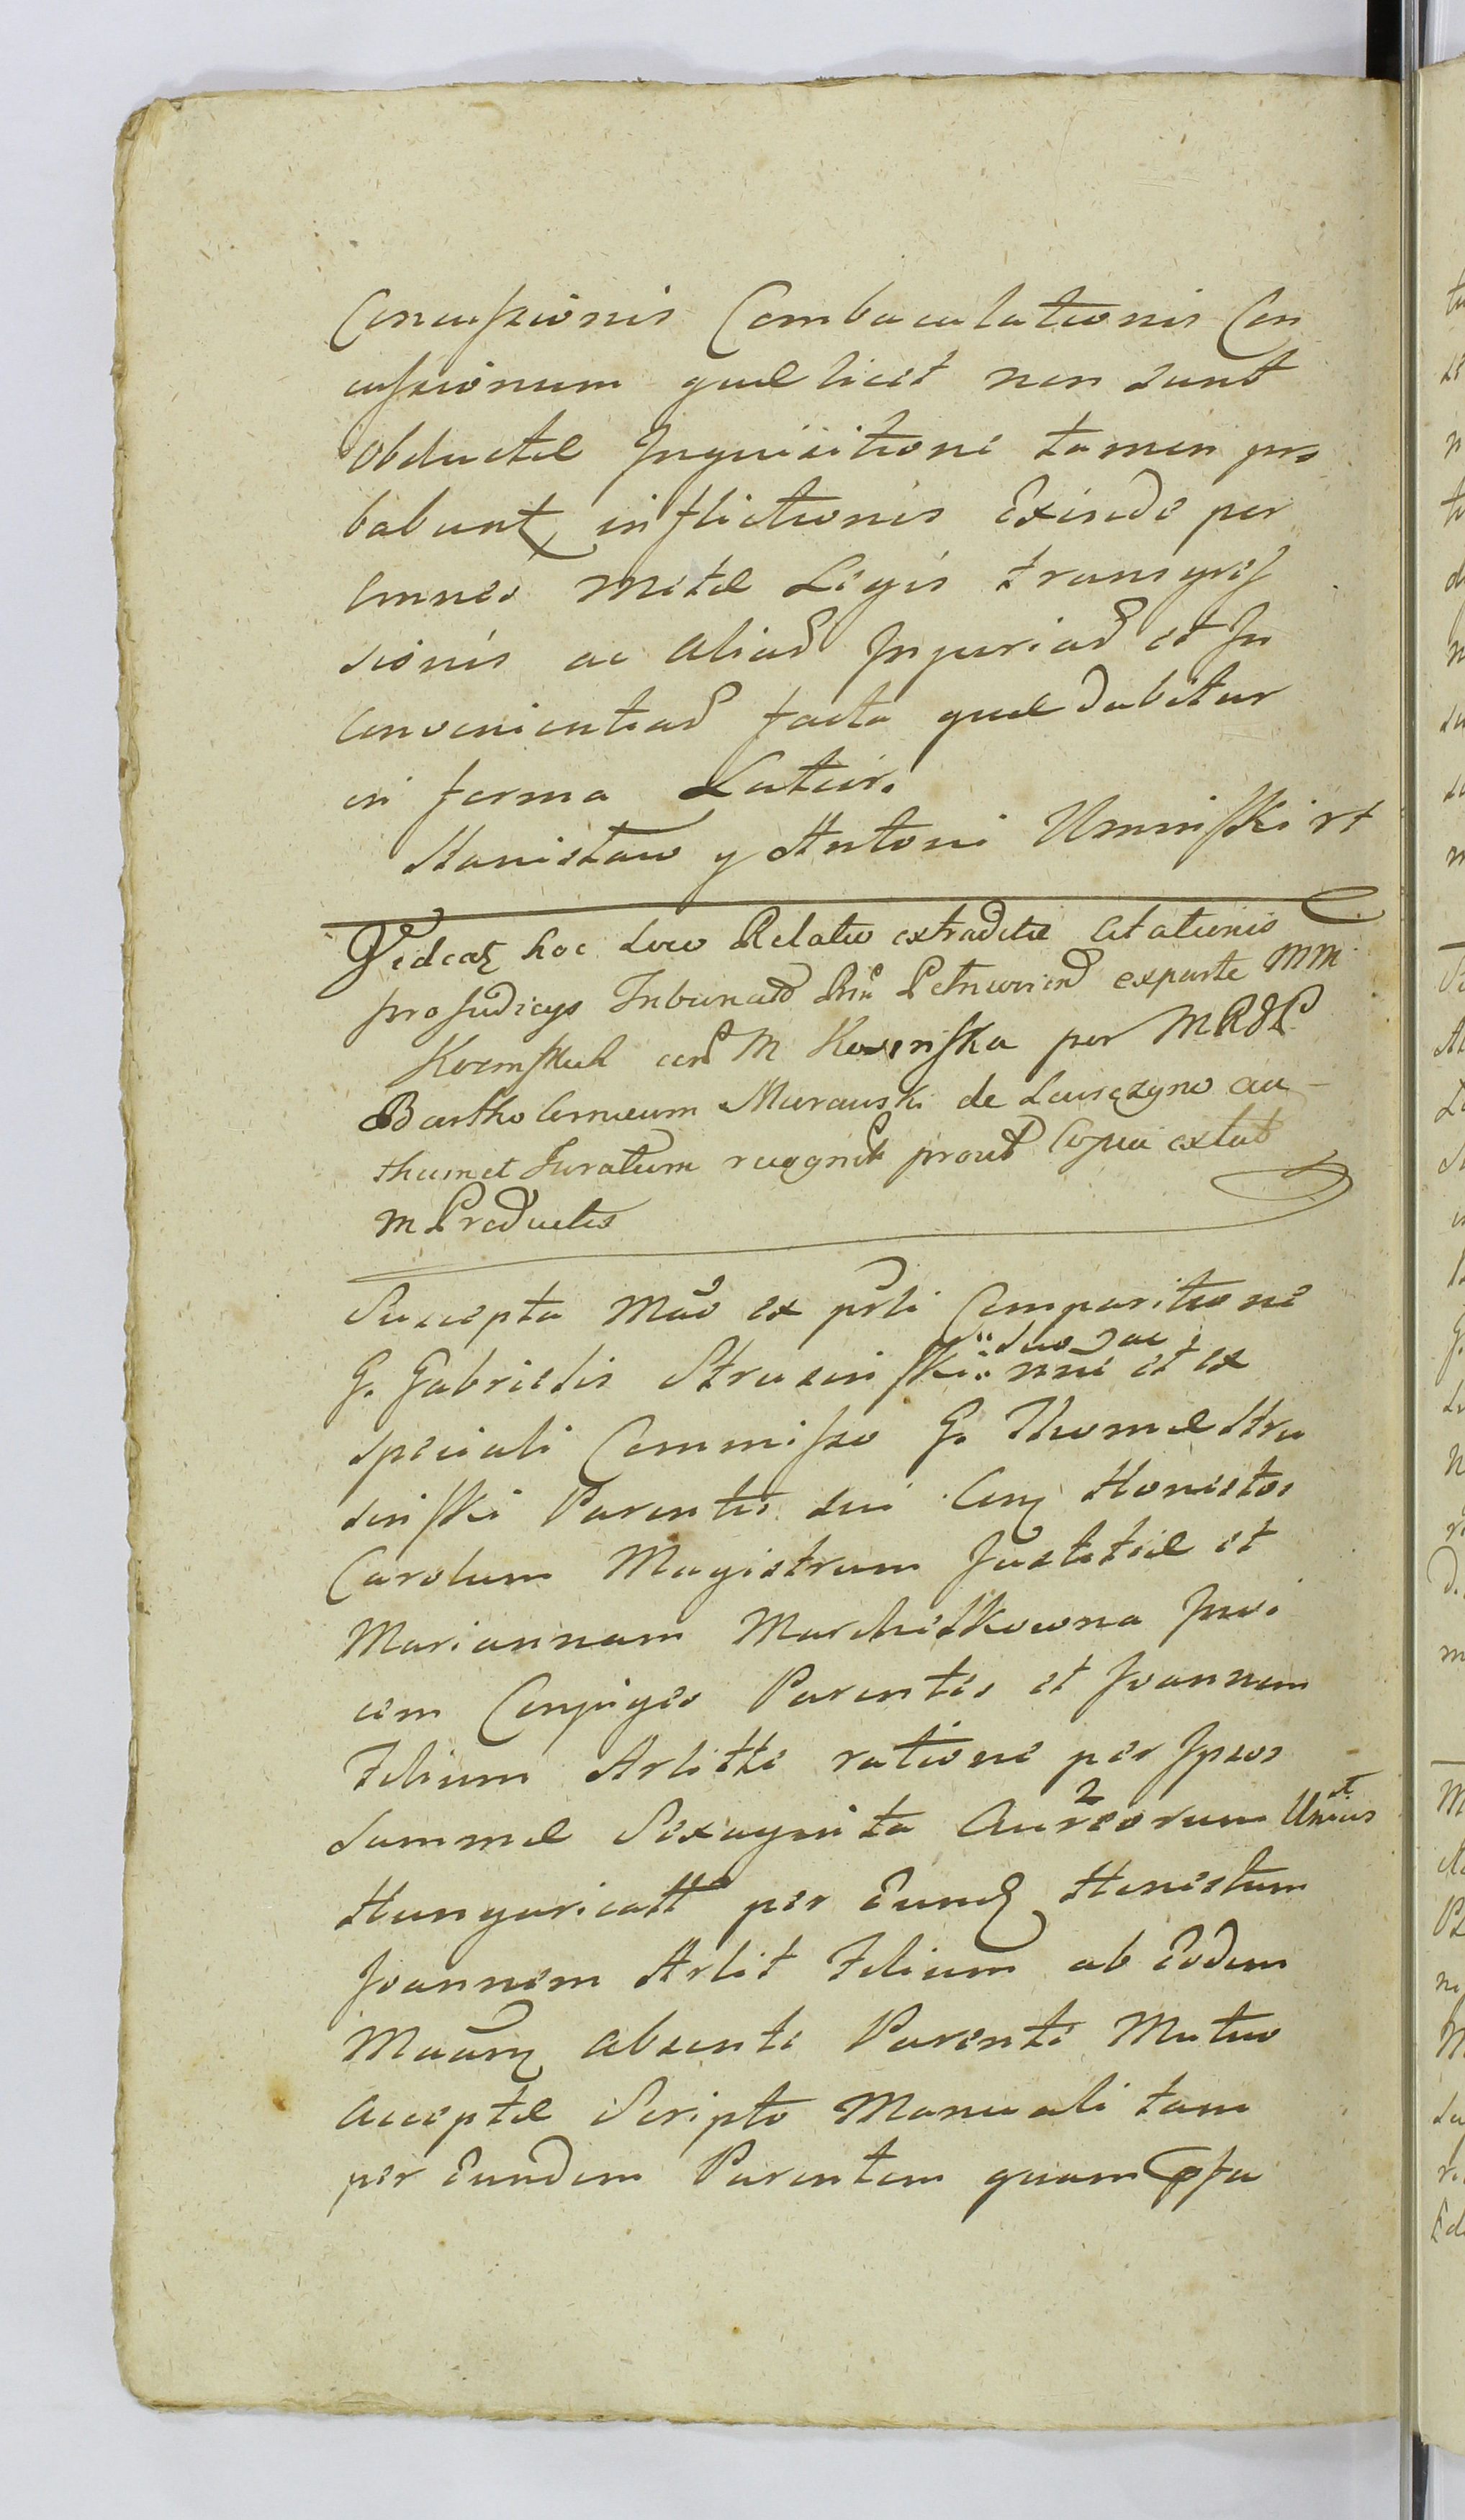 Concussionis Combaculationis Con
cussionum quæ licet non sunt
obductæ Inquisitione tamen pro
babunt inflictionis Exinde per
omnes metæ Legis transgres
sionis ac aliaꝝ Injuriaꝝ et In
convenientiaꝝ facta quæ dabitur
in forma Latiori
Stanisław y Antoni Uminſki
Videat hoc loco Relatio extraditæ Citationis
pro Judicys Tribunalꝝ Petricovienꝝ exparte MM
con M Kozinſka per
Bartholomeum Murawski de au
thum et Juratum prout Copia extat
in Productis
Suscepta ex Comparitione
G. Gabrielis Strusinſki suo ac nnē et ex
speciali Commisso G. Thomæ Stru
sinſki Parentis sui Honestos
Carolum Magistrum Justitiæ et
Mariannam Invi
cem Conjuges Parentes et Joannem
Filium Arlitte ratione per Ipsos
Summæ Sexaginta Aureorum
Hungaricall per Eund Honestum
Joannem Arlit Filium ab Eodem
absente Parente Mutuo
acceptæ Scripto Manuali tam
per Eundem Parentem quam